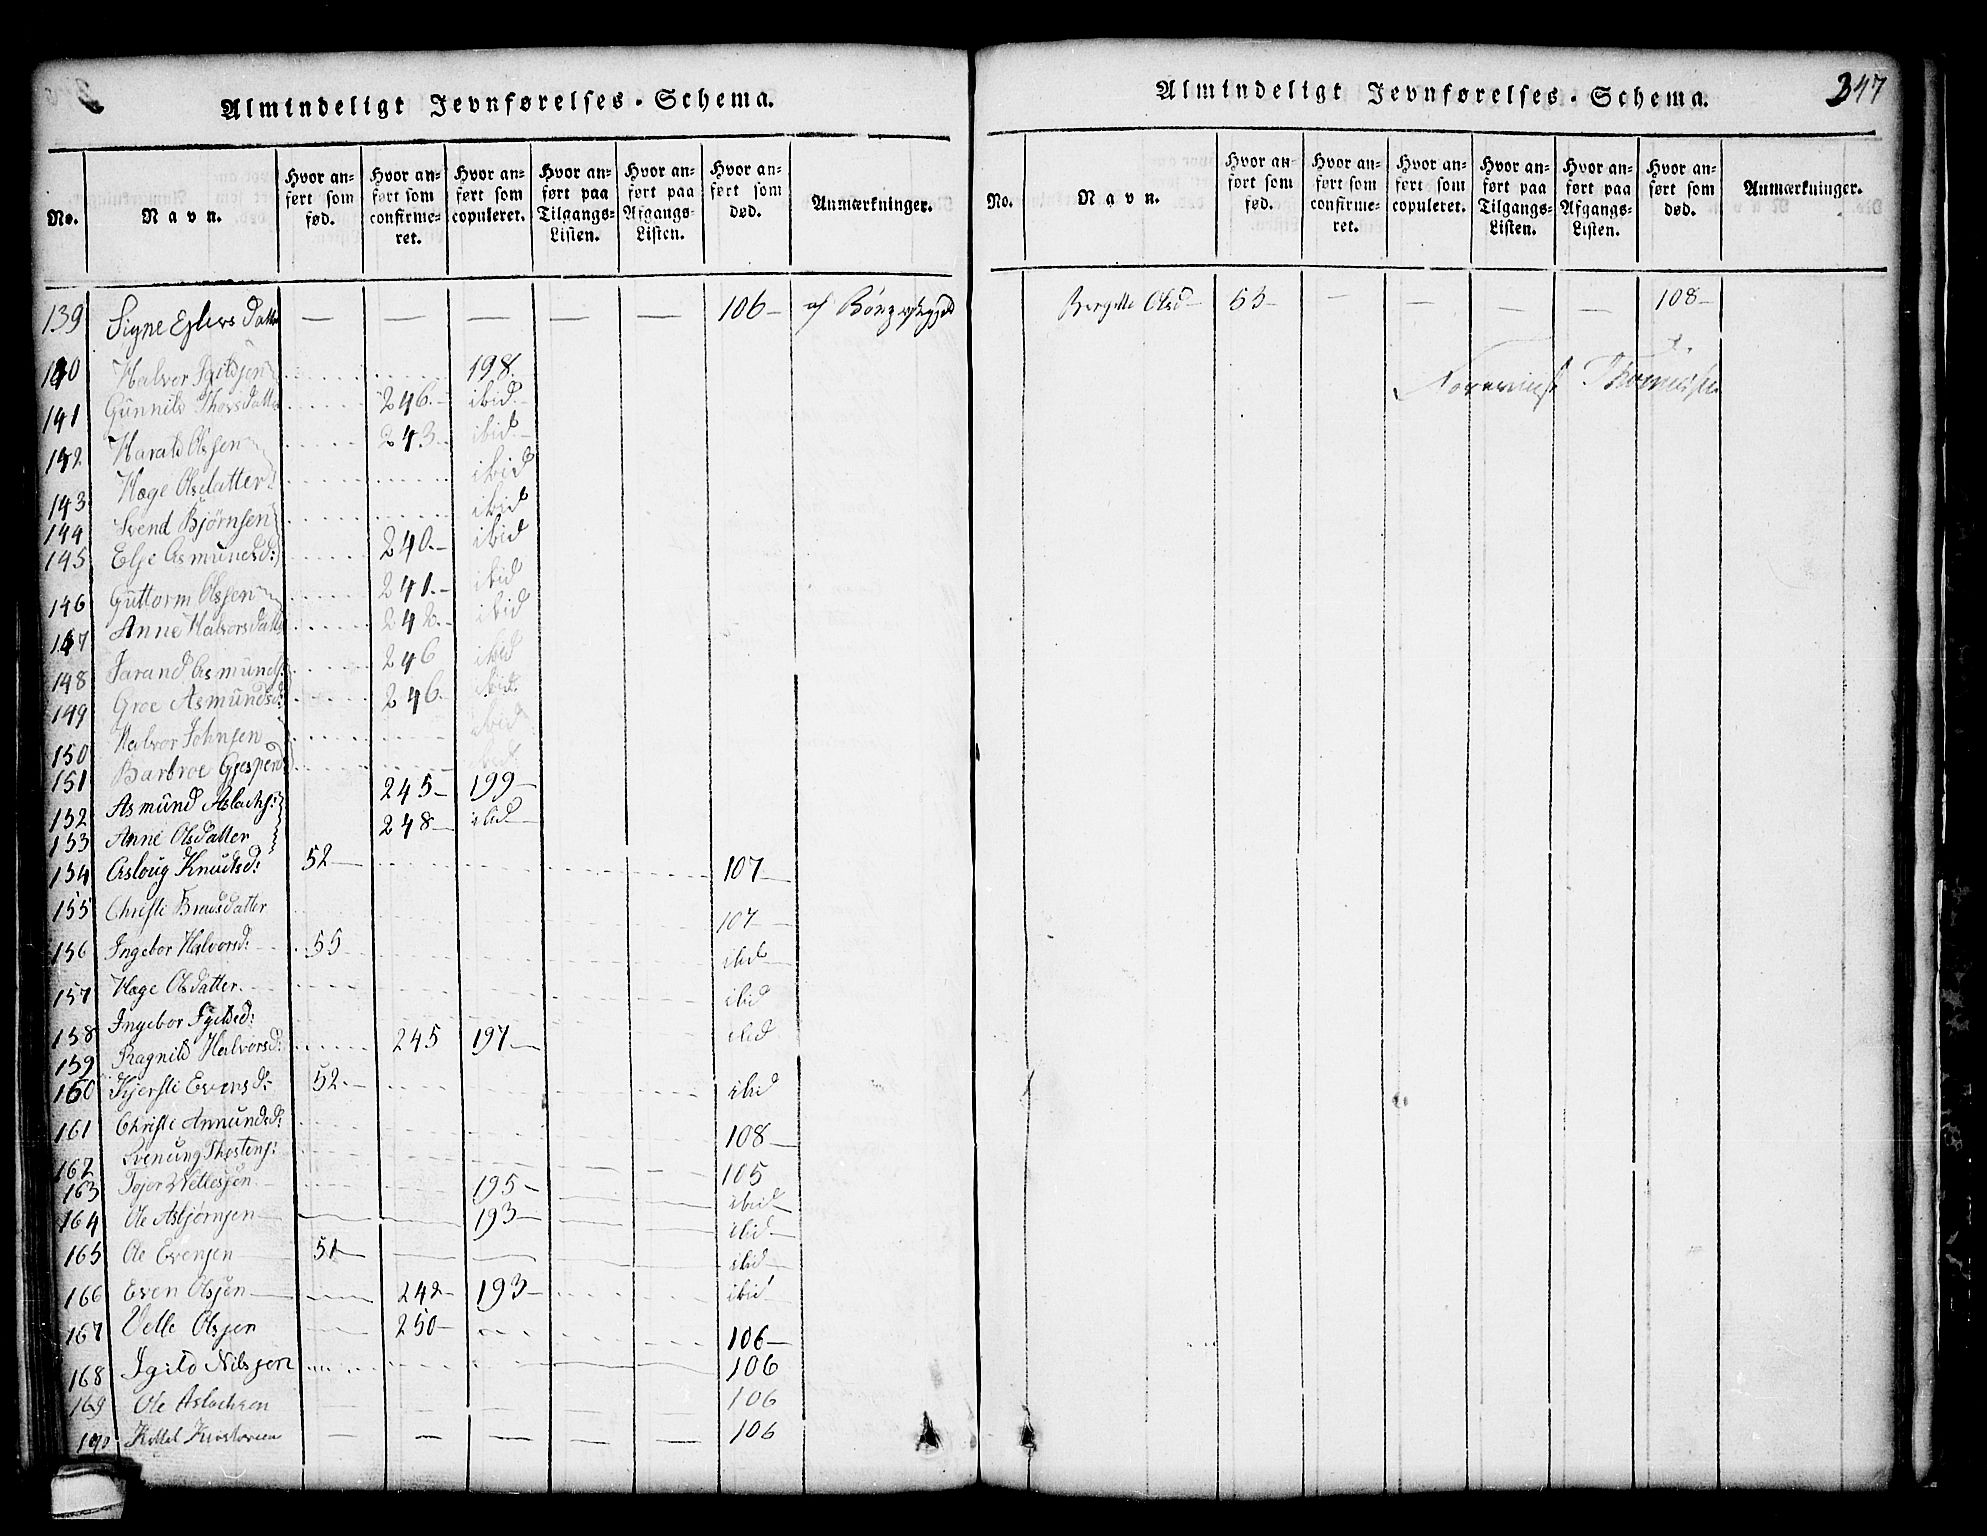 Almindeligt Jevnførelses-Schema.
No. Navn. Hvor anført som fød. Hvor anført som confirmeret. Hvor anført som copuleret. Hvor anført paa Tilgangs-Listen. Hvor anført paa Afgangs-Listen. Hvor anført som død. Anmærkninger.
139 Signe Ejlers Datter — — — — — 106 — af
140 Halvor 198.
141 Gunnild Thorsdatter 246. ibid
142 Harald Olssen 243. ibid
143 Hæge Olsdatter ibid
144 Svend Bjørnsen ibid
145 Else Asmundsd: 240. ibid
146 Guttorm Olssen 241. ibid
147 Anne Halvorsdatter 242. ibid
148 Jarand Asmunds: 246 ibid
149 Groe Asmundsd: 246. ibid
150 Halvor Johnsen ibid
151 Barbroe ibid
152 Asmund Aslachs: 245 — 199 —
153 Anne Olsdatter 248 — ibid —
154 Asloug Knutsd: 52 — 107 —
155 Christi 107 —
156 Ingebor Halvorsd: 55 ibid
157 Hæge Olsdatter ibid
158 Ingebor ibid
159 Ragnild Halvorsd: 245 197 —
160 Kjersti Evensd: 52. — ibid
161 Christi Amundsd: 108 —
162 Svenung Thostens: 105
163 Vettesen 195 — ibid
164 Ole Asbjørnsen 193 — ibid —
165 Ole Evensen 51 — ibid —
166 Even Olssen 242 — 193 — ibid
167 Velle Olssen 250 — 106 —
168 Igild Nilssen 106
169 Ole Aslachsen 106
Kittel — — — — — 106
Almindeligt Jevnførelses-Schema.
347
No. Navn. Hvor anført som fød. Hvor anført som confirmeret. Hvor anført som copuleret. Hvor anført paa Tilgangs-Listen. Hvor anført paa Afgangs-Listen. Hvor anført som død. Anmærkninger.
Bergitte Olsd — 55 — — — — — 108 —